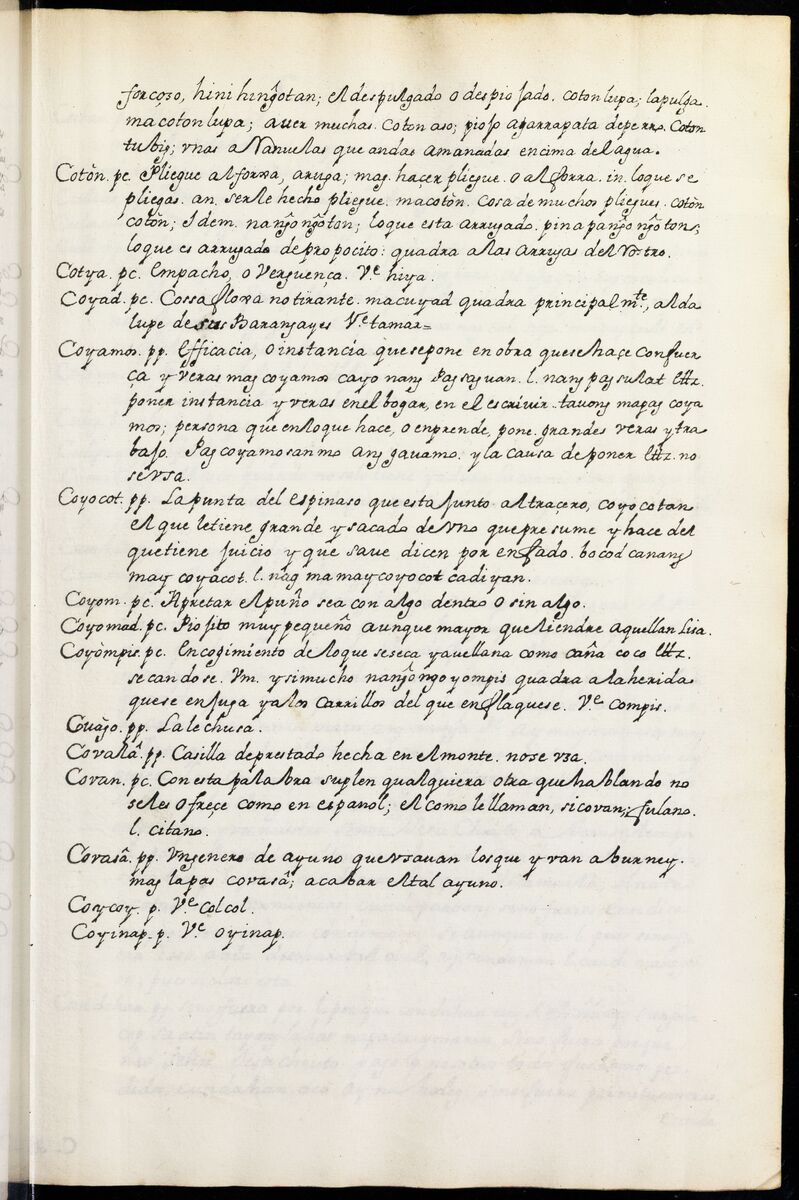 forçozo, hini hinĝotan; el despulgado o despiojado. coton lupa; la pulga.
macoton lupa; auer muchas. coton aso; piojo agarrapata de perro. Coton
tubig; vnas a Nañuelas que andas amanadas encima del agua.
Cotòn. pc. Pliegue alforza, aruga; mag. haçer pliegue. o alforra. in. lo que se
pliegas. an. serle hecho pliegue. macotòn. Cosa de muchos pliegues. cotòn
cotòn; Idem. nanĝonĝòton; lo que esta arrugado. pinapanĝonĝòton;
lo que es arrugado de propocito: quadra a las arrugas del Rostro.
Cotya. pc. Empacho, o Verguença. Vᵉ hiya.
Coyad. pc. Cossa floxa no tirante. macuyad quadra principal mᵗᵉ, alda
lupe de sus Baranjayes Vᵉ tamar=
Coyamos. pp. Efficacia, o instancia que se pone en obra que se haçe con fuer
ça y veras mag coyamos cayo nang Pag saguan. l. nang pag sulat ettz.
poner instancia y veras en el bogar, en el escrivir.. tauong mapag coya
mos; persona que en lo que hace, o enprende, pone grandes veras y tra
bajo. Pag coyamosan mo ang gauamo. y la causa de poner ettz. no
se vsa.
Coyocot. pp. La punta del espinaso que esta junto al traçero, coyocotan
el que le tiene grande y sacado de vno que presume y hace del
que tiene juicio y que saue dicen por enfado. bocod canang
may coyacot. l. nag mamay coyocot cadiyan.
Coyom. pc. Apretar el puño sea con algo dentro o sin algo.
Coyomad. pc. Piojito muy pequeño aunque mayor que liendre aquellan Lisa.
Coyòmpis. pc. Encogimiento de lo que se seca y auellana como caña coco ettz.
secandose. Vm. y si mucho nanĝonĝoyompis quadra a la herida
que se enjuga y a los carrillos del que enflaquese. Vᵉ Compis.
Cuago. pp. La lechusa.
Covalâ. pp. Casilla de prestado hecha en el monte. no se vza.
Covan. pc. Con esta palabra suplen qualquiera otra que hablando no
se les ofreçe como en español; el como le llaman, si covan; fulano.
l. citano.
Corasâ. pp. Vn genero de ayuno que vsauan los que yvan a burney.
mag lapas corasâ; acabar el tal ayuno.
Coycoy. p. Vᵉ Colcol.
Coyinap. p. Vᵉ oyinap.